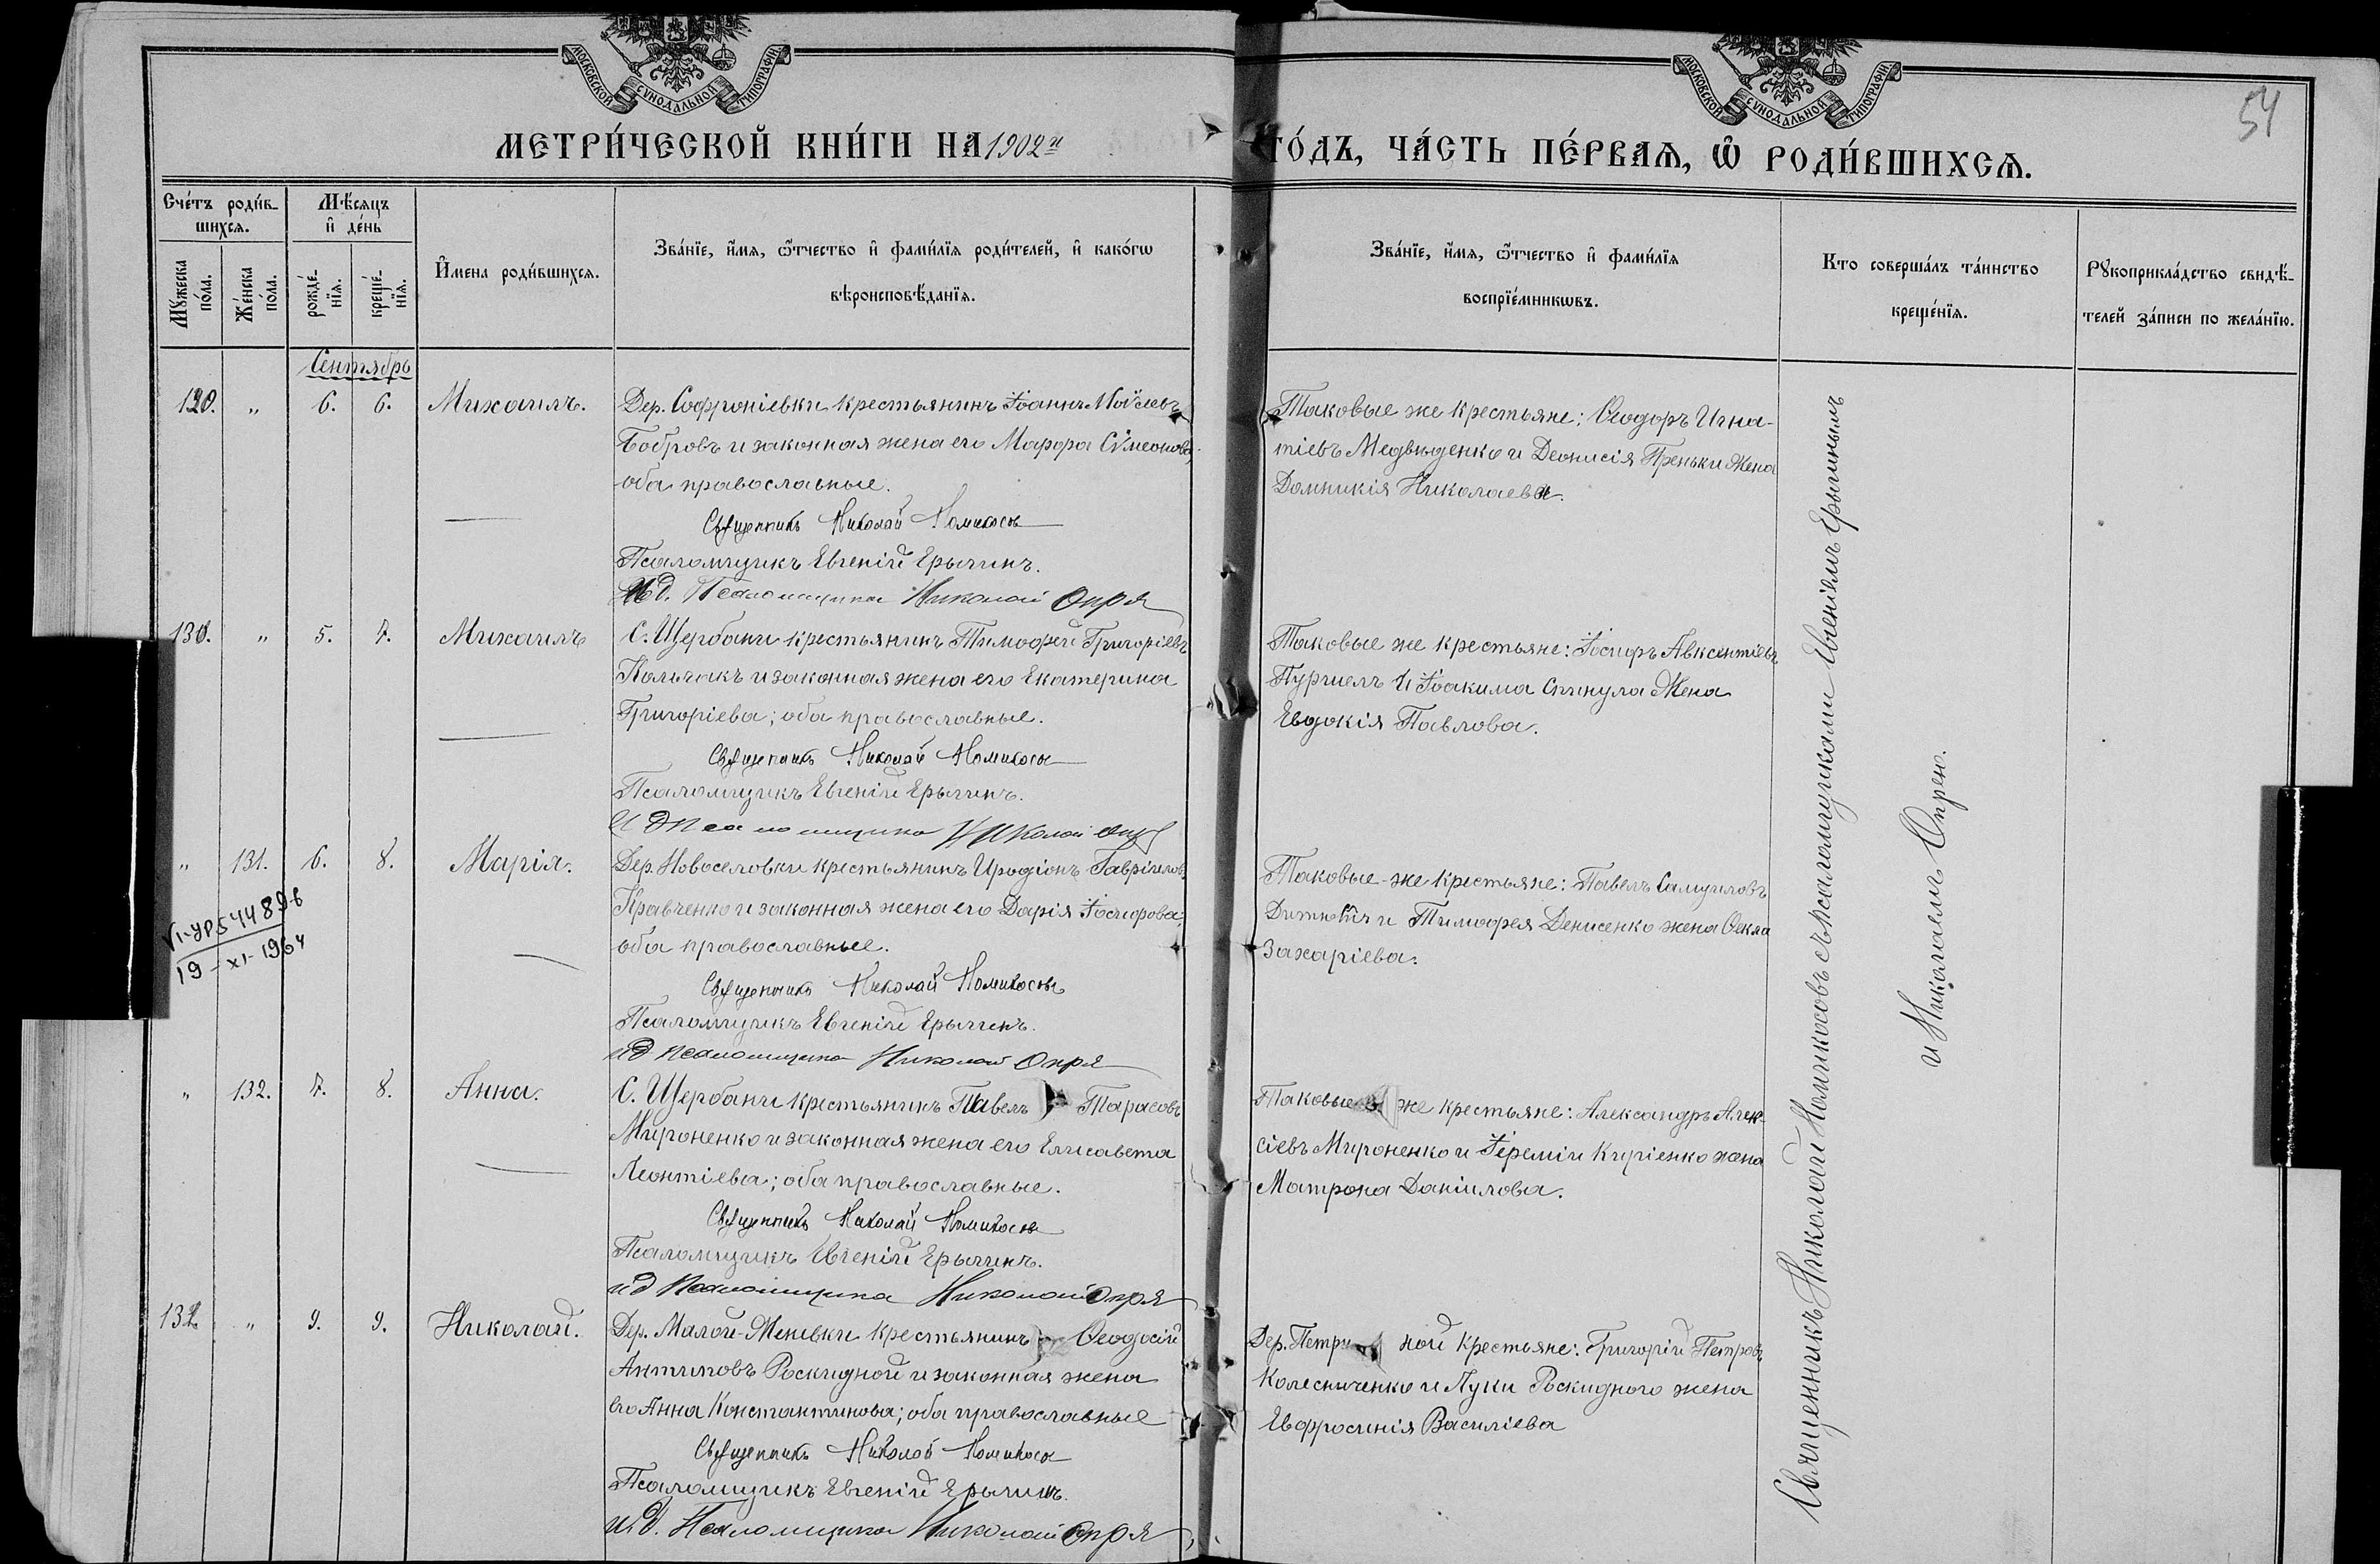 МОСКОВСКОЙ СУНОДАЛЬНОЙ ТИПОГРАФІИ
МОСКОВСКОЙ СУНОДАЛЬНОЙ ТИПОГРАФІИ
54
МЕТРИ́ЧЕСКОЙ КНИ́ГИ НА 1902й
ГО́ДЪ, ЧА́СТЬ ПЕ́РВАѦ, Ѡ РОДИ́ВШИХСѦ.
Сче́тъ роди́в-
шихсѧ.
Мꙋ́жеска по́ла.
Же́нска по́ла.
Мѣ́сѧцъ
и҆ де́нь
рожде́-нїѧ.
креще́-нїѧ.
И҆мена роди́вшихсѧ.
Зва́нїе, и҆́мѧ, ѻ҆́тчество и҆ фами́лїѧ роди́телей, и҆ како́гѡ
вѣроисповѣ́данїѧ.
Зва́нїе, и҆́мѧ, ѻ҆́тчество и҆ фами́лїѧ
воспрїе́мникѡвъ.
Кто соверша́лъ та́инство
креще́нїѧ.
Рꙋкоприкла́дство свидѣ́-
телей за́писи по жела́нїю.
Сентябрь
„ 6. 6. Михаилъ.
Дер. Софроніевки крестьянинъ Іоаннъ Моѵсеевъ
Бобровъ и законная жена его Марѳа Сѵмеонова,
оба православные.
Священникъ Николай Номикосовъ
Псаломщикъ Евгеній Ерыгинъ.
И.д. Псаломщика Николай Опря
Таковые же крестьяне: Ѳеодоръ Игна-
тіевъ Медвѣденко и Деонисія Преньки жена
Домникія Николаева.
„ 5. 7. Михаилъ
С. Щербани крестьянинъ Тимоѳей Григоріевъ
Кольчакъ и законная жена его Екатерина
Григоріева; оба православные.
Священникъ Николай Номикосовъ
Псаломщикъ Евгеній Ерыгинъ.
И д Псаломщика Николай Опря
Таковые же крестьяне: Іосифъ Авксентіевъ
Пургиелъ и Іоакима Спинула жена
Евдокія Павлова.
„ 131. 6. 8. Марія.
Дер. Новоселовки крестьянинъ Иродіонъ Гавріиловъ
Кравченко и законная жена его Дарія Іосифова;
оба православные.
Священникъ Николай Номикосовъ
Псаломщикъ Евгеній Ерыгинъ.
ид псаломщика Николай Опря
Таковые-же крестьяне: Павелъ Самуиловъ
и Тимоѳея Денисенко жена Ѳекла
Захаріева.
VI-УР544889-б
19-XI-1964
„ 132. 7. 8. Анна.
С. Щербани крестьянинъ Павелъ Тарасовъ
Мироненко и законная жена его Елисавета
Леонтіева; оба православные.
Священникъ Николай Номикосовъ
Псаломщикъ Евгеній Ерыгинъ.
ид Псаломщика Николай Опря
Таковые же крестьяне: Александръ Алек-
сіевъ Мироненко и Іереміи Киріенко жена
Матрона Даніилова.
„ 9. 9. Николай.
Дер. Малой-Менивки крестьянинъ Ѳеодосій
Антиповъ Роскидной и законная жена
его Анна Константинова; оба православные
Священникъ Николай Номикосовъ
Псаломщикъ Евгеній Ерыгинъ.
и.д. Псаломщика Николай Опря
Дер. Петри ной крестьяне: Григорій Петровъ
Колесниченко и Луки Роскидного жена
Евфросинія Василіева
Священникъ Николай Номикосовъ съ псаломщиками Евгеніемъ Ерыгинымъ
и Николаемъ Опрею.